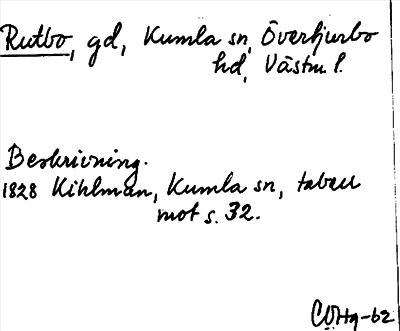 Rutbo, gd, Kumla sn, Övertjurbo
hd, Västm l.
Beskrivning.
1828 Kihlman, Kumla sn, tabell
mot s. 32.
COHq-62